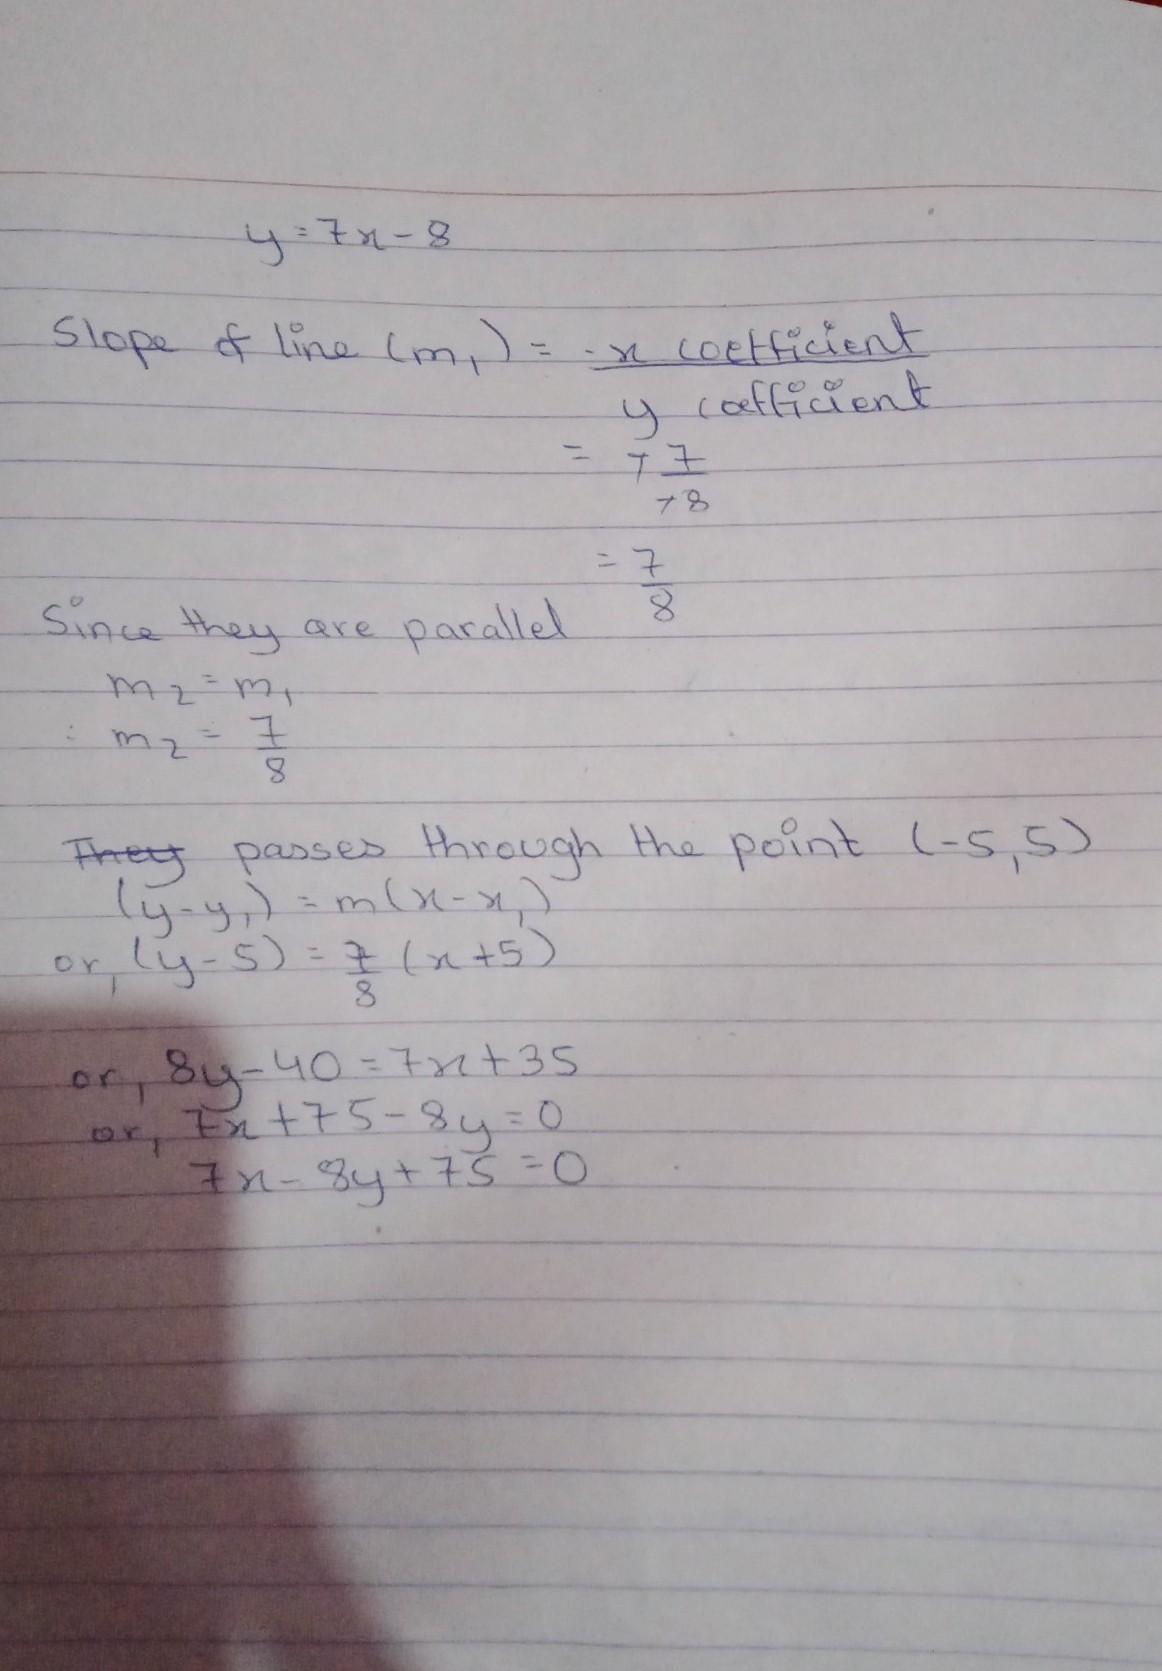 y = 7x - 8
Slope of line (m₁) = -x coefficient
y coefficient
= + 7
+ 8
= 7
8
Since they are parallel
m₂ = m₁
∴ m₂ = 7
8
They passes through the point (-5,5)
(y-y₁) = m(x-x₁)
or, (y-5) = 7/8 (x+5)
or, 8y-40 = 7x+35
or, 7x+75-8y=0
7x-8y+75=0